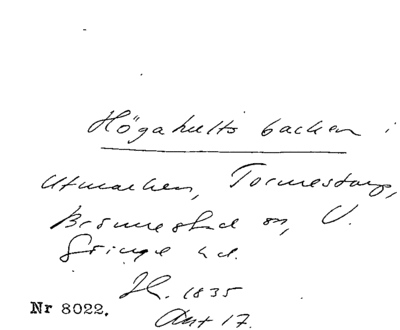 Högahults backen i
utmarken, Tormestorp,
Brönnestad sn, V.
Göinge hd.
1835
Akt 17.
Nr 8022.